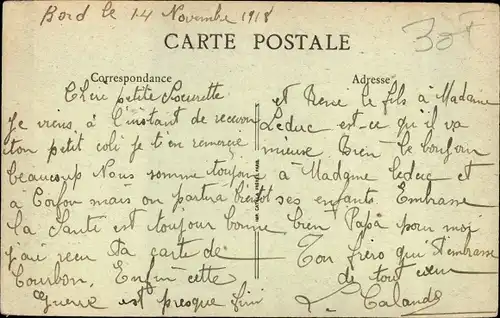 Bord le 14 Novembre 1918
CARTE POSTALE
Correspondance
Chère petite Soeurette
Je viens à l'instant de recevoir
ton petit coli je t'en remercie
beaucoup Nous somme toujour
à Corfou mais on partira bientot
la Santé est toujour bonne
j'ai reçu ta carte de
Courbon. Enfin cette
Guerre est presque fini
Adresse
et René le fils à Madame
Leduc est-ce qu'il va
mieuse. Bien le bonjour
à Madame leduc et
ses enfants. Embrasse
bien Papa pour moi
Ton frero qui t'embrasse
de tout coeur